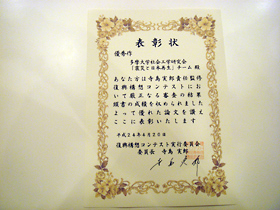 表彰状
優秀作
多摩大学社会工学研究会
「震災と日本再生」チーム 殿
あなた方は寺島実郎責任監修
復興構想コンテストにお
いて厳正なる審査の結果
頭書の成績を収められました
よって優れた論文を讃え
ここに表彰いたします
平成24年4月20日
復興構想コンテスト実行委員会
委員長 寺島 実郎